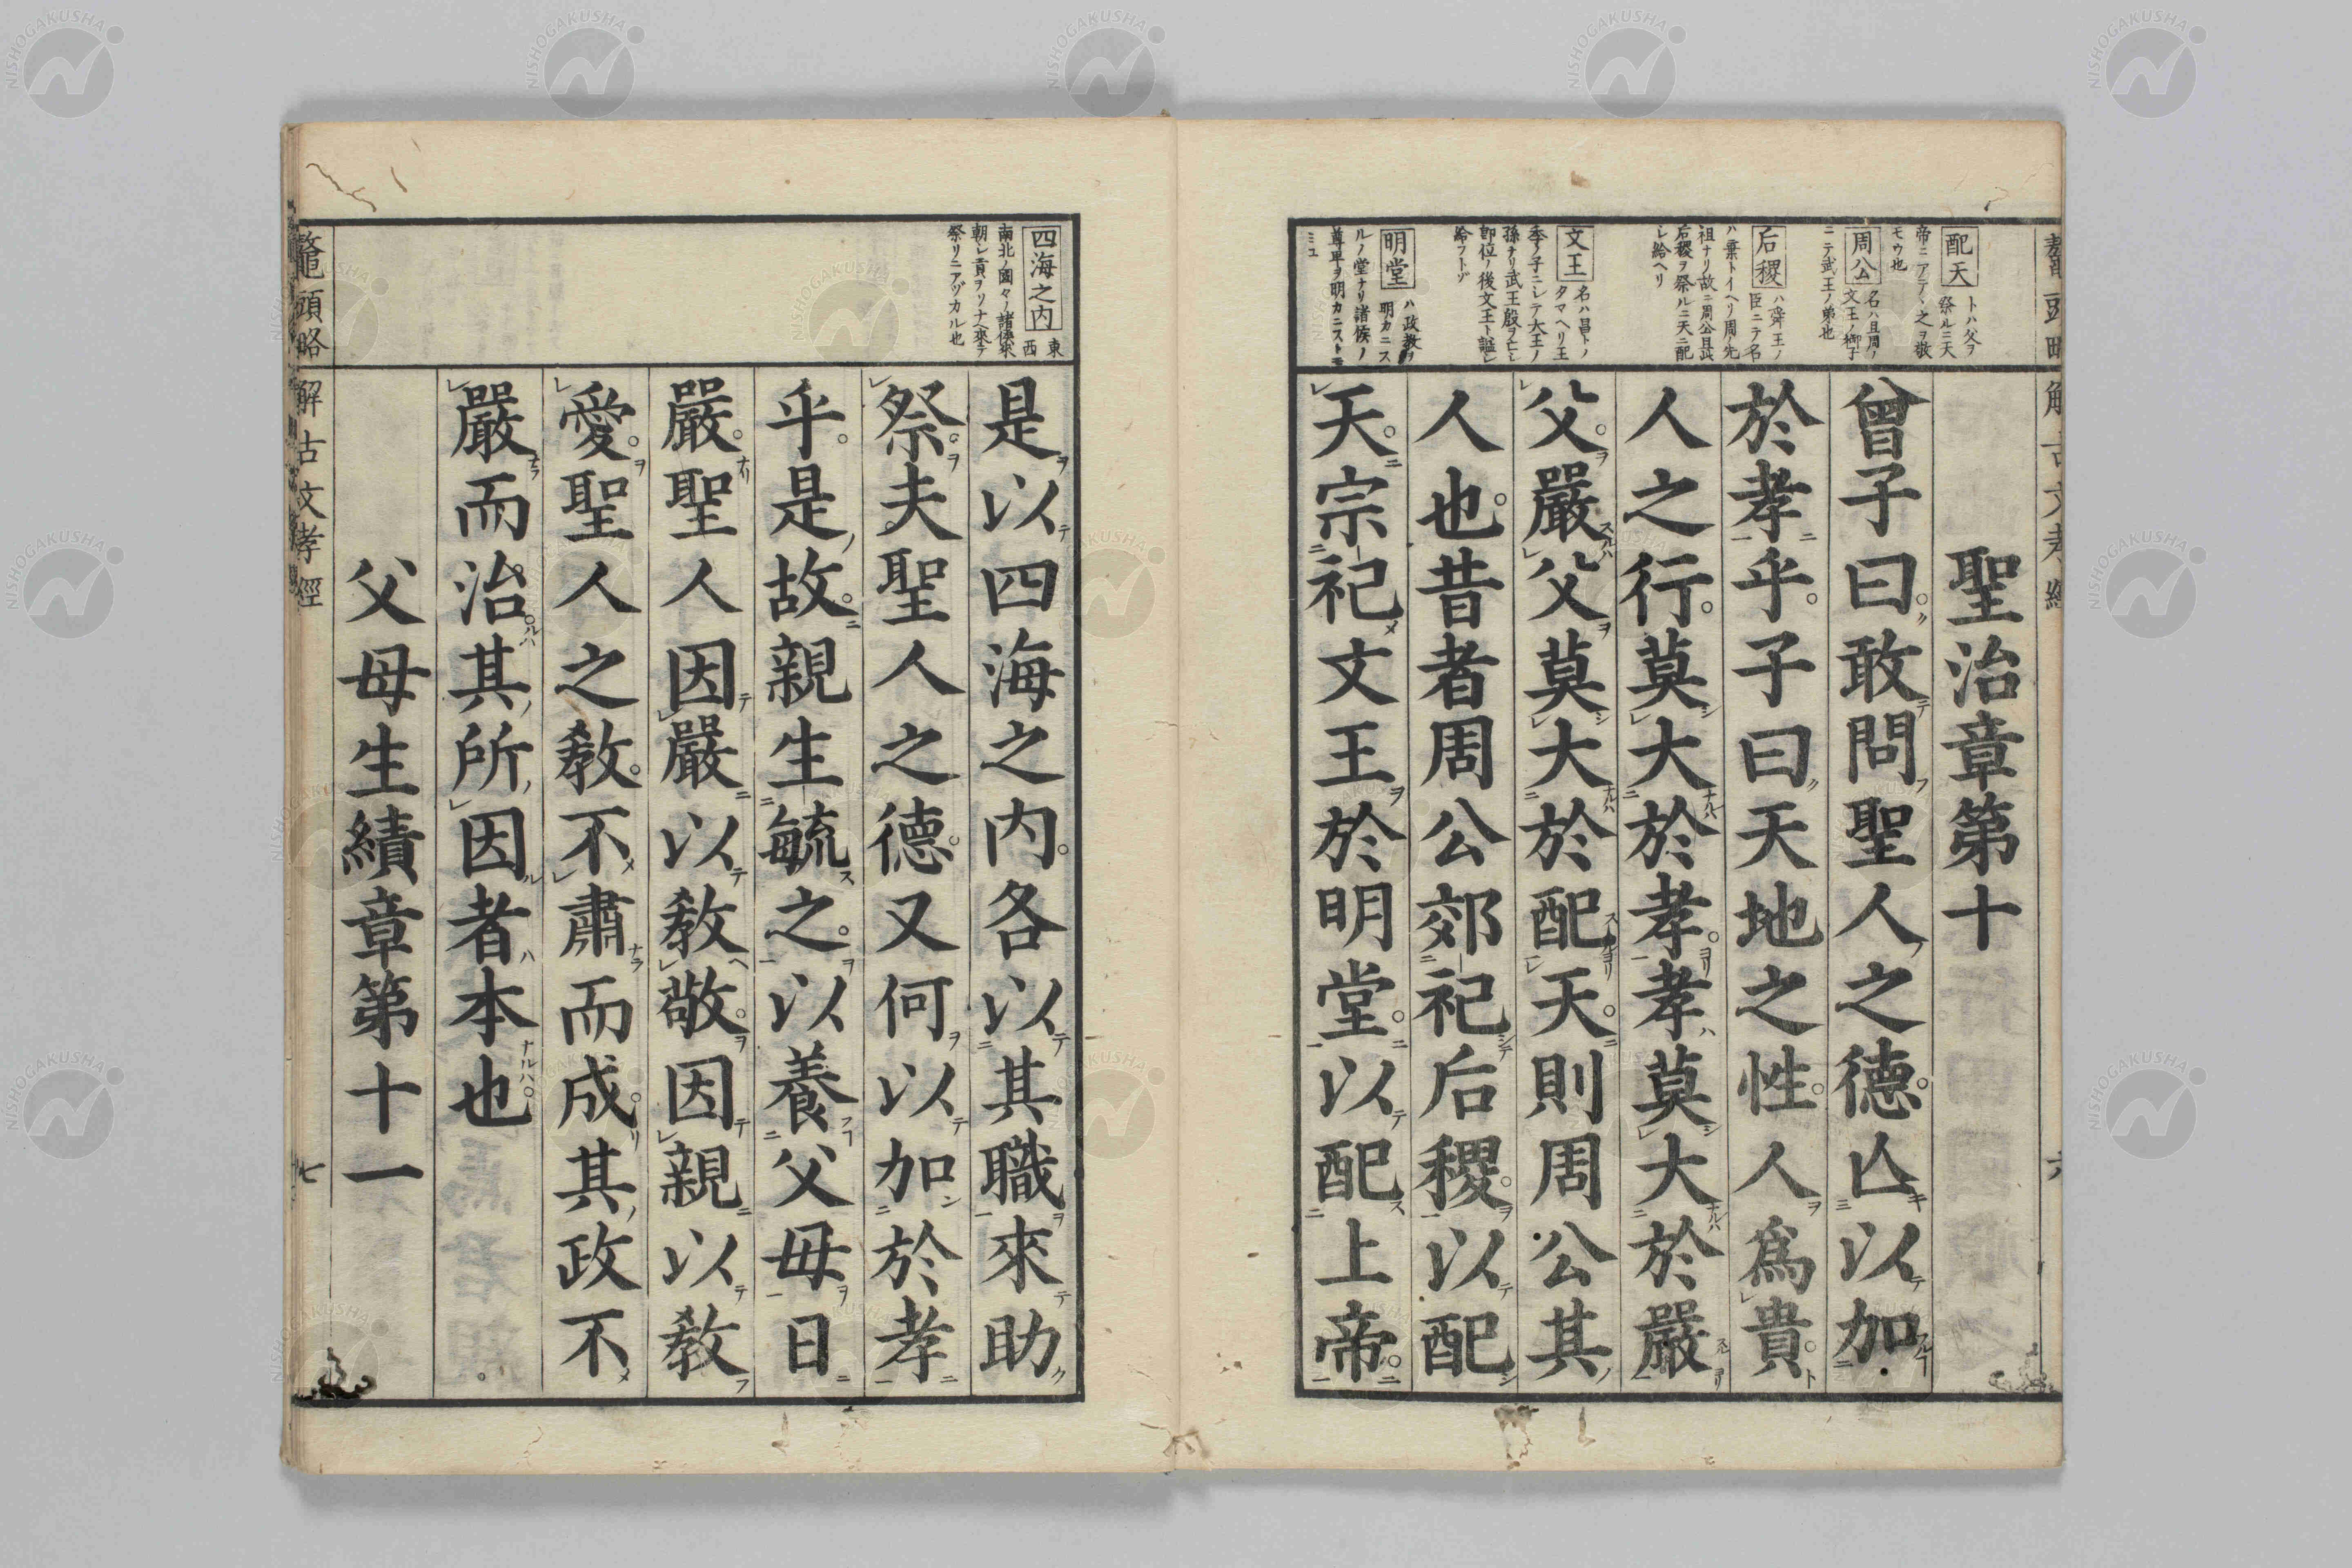 聖治章第十
曾子曰敢問聖人之德亾以加
於孝乎子曰天地之性人爲貴
人之行莫大於孝孝莫大於嚴
父嚴父莫大於配天則周公其
人也昔者周公郊祀后稷以配
天宗祀文王於明堂以配上帝
配天
トハ父ヲ
祭ルニ天
帝ニアテヽ之ヲ敬
モウ也
周公
名ハ旦周ノ
文王ノ御子
ニテ武王ノ弟也
后稷
ハ舜王ノ
臣ニテ名
ハ棄トイヘリ周ノ先
祖ナリ故ニ周公且此
后稷ヲ祭ルニ天ニ配
シ給ヘリ
文王
名ハ昌トノ
タマヘリ王
季ノ子ニシテ大王ノ
孫ナリ武王殷ヲ亡シ
即位ノ後文王ト謚シ
給フトゾ
明堂
ハ政教ヲ
明カニス
ルノ堂ナリ諸侯ノ
尊卑ヲ明カニストモ
ミユ
六
是以四海之内各以其職來助
祭夫聖人之德又何以加於孝
乎是故親生毓之以養父母日
嚴聖人因嚴以教敬因親以教
愛聖人之教不肅而成其政不
嚴而治其所因者本也
父母生績章第十一
四海之内
東
西
南北ノ國々ノ諸侯來
朝シ貢ヲソナヘ來テ
祭リニアヅカル也
鼇頭略解古文孝經
七
NISHOGAKUSHA